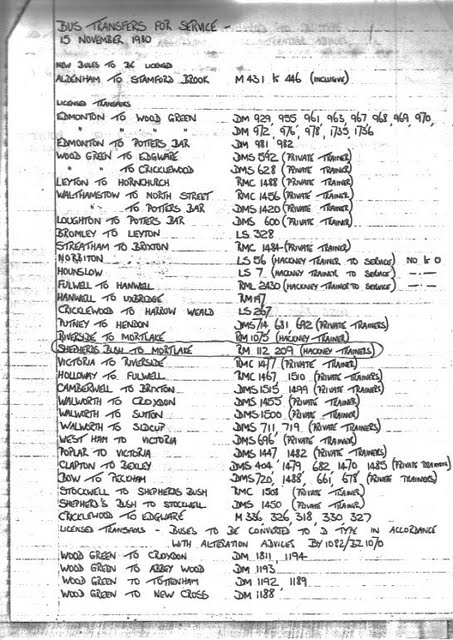 BUS TRANSFERS FOR SERVICE -
15 NOVEMBER 1980
NEW BUSES TO BE LICENSED
ALDENHAM TO STAMFORD BROOK M 431 to 446 (INCLUSIVE)
LICENSED TRANSFERS
EDMONTON TO WOOD GREEN DM 929, 955 961, 963, 967 968, 969, 970,
" " " " DM 972, 976, 978, 1735, 1736
EDMONTON TO POTTERS BAR DM 981, 982
WOOD GREEN TO EDGWARE DMS 592 (PRIVATE TRAINER)
" " TO CRICKLEWOOD DMS 628 (PRIVATE TRAINER)
LEYTON TO HORNCHURCH RMC 1488 (PRIVATE TRAINER)
WALTHAMSTOW TO NORTH STREET RMC 1456 (PRIVATE TRAINER)
" TO POTTERS BAR DMS 1420 (PRIVATE TRAINER)
LOUGHTON TO POTTERS BAR DMS 600 (PRIVATE TRAINER)
BROMLEY TO LEYTON LS 328
STREATHAM TO BRIXTON RMC 1484 (PRIVATE TRAINER)
NORBITON LS 56 (HACKNEY TRAINER TO SERVICE)
HOUNSLOW LS 7 (HACKNEY TRAINER TO SERVICE) -"-
FULWELL TO HANWELL RML 2430 (HACKNEY TRAINER TO SERVICE) -"-
HANWELL TO UXBRIDGE RM 147
CRICKLEWOOD TO HARROW WEALD LS 267
PUTNEY TO HENDON DMS 714, 681, 692 (PRIVATE TRAINERS)
RIVERSIDE TO MORTLAKE RM 1075 (HACKNEY TRAINER)
SHEPHERDS BUSH TO MORTLAKE RM 112, 209 (HACKNEY TRAINERS)
VICTORIA TO RIVERSIDE RMC 1477 (PRIVATE TRAINER)
HOLLOWAY TO FULWELL RMC 1467, 1510 (PRIVATE TRAINERS)
CAMBERWELL TO BRIXTON DMS 1515, 1499 (PRIVATE TRAINERS)
WALWORTH TO CROYDON DMS 1455 (PRIVATE TRAINER)
WALWORTH TO SUTTON DMS 1500 (PRIVATE TRAINER)
WALWORTH TO SIDCUP DMS 711, 719 (PRIVATE TRAINERS)
WEST HAM TO VICTORIA DMS 696 (PRIVATE TRAINER)
POPLAR TO VICTORIA DMS 1447, 1482 (PRIVATE TRAINERS)
CLAPTON TO BEXLEY DMS 404, 1479, 682, 1470 1485 (PRIVATE TRAINERS)
BOW TO PECKHAM DMS 720, 1488, 661, 678 (PRIVATE TRAINERS)
STOCKWELL TO SHEPHERDS BUSH RMC 1508 (PRIVATE TRAINER)
SHEPHERD'S BUSH TO STOCKWELL DMS 1450 (PRIVATE TRAINER)
CRICKLEWOOD TO EDGWARE M 336, 326, 318, 330, 327
LICENSED TRANSFERS - BUSES TO BE CONVERTED TO D TYPE IN ACCORDANCE
WITH ALTERATION ADVICES BY 1082/BZ 1070
WOOD GREEN TO CROYDON DM 1811, 1194
WOOD GREEN TO ABBEY WOOD DM 1193
WOOD GREEN TO TOTTENHAM DM 1192 1189
WOOD GREEN TO NEW CROSS DM 1188